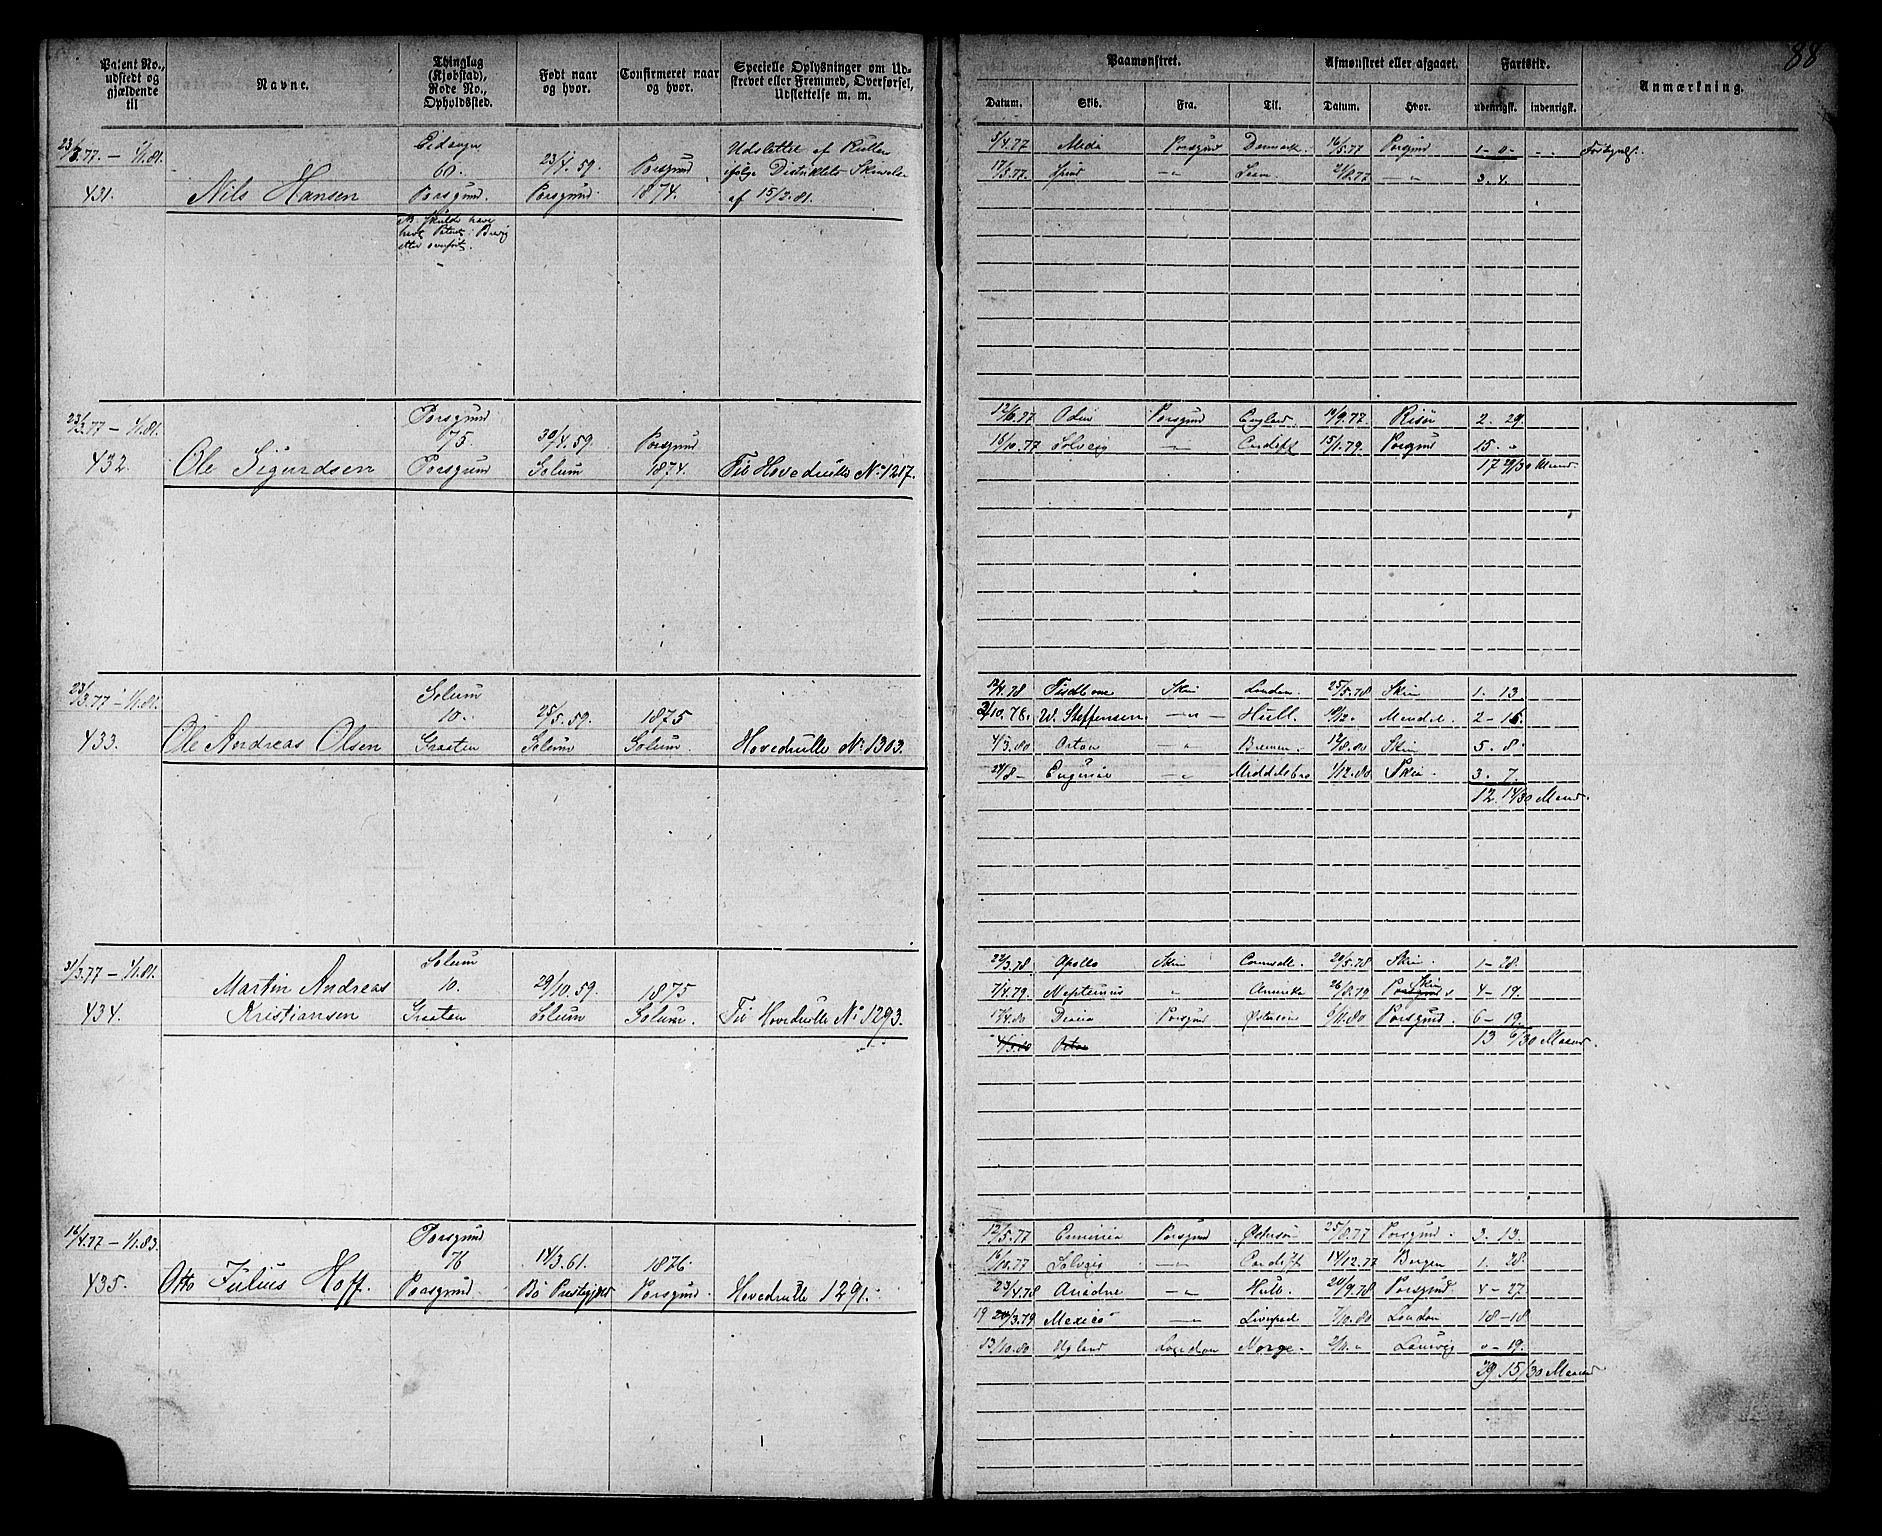 88
Patent No., udstedt og gjældende til
Navne.
Thinglag (Kjøbstad), Rode No., Opholdssted.
Født naar og hvor.
Confirmeret naar og hvor.
Specielle Oplysninger om Udskrevet eller Fremmed, Overførsel, Udslettelse m. m.
Paamønstret.
Afmønstret eller afgaaet.
Fartstid.
Anmærkning.
Datum. Skib. Fra. Til. Datum. Hvor. udenrigsk. indenrigsk.
23/3.77 – 1/1.81.
431.
Nils Hansen
Eidanger
60.
Porsgrund.
23/4.59.
Porsgrund.
Porsgrund
1874.
Udslettet af Rullen
ifølge Distriktets Skrivelse
af 15/2.81.
5/4.77 Porsgrund Danmark 16/5.77 Porsgrund 1 – 0 –
3. 4.
23/3.77 – 1/1.81.
432.
Ole Sigurdsen
Porsgrund
75
Porsgrund
30/4.59.
Solum
Porsgrund
1874.
Til Hovedrulle No 1217.
Odin Porsgrund England 11/9.77 Risør 2. 29.
15/10.77 Solveig – „ – Cardiff 15/1.79. Porsgrund 15. „
17 29/30 Maaned
23/3.77 – 1/1.81.
433.
Ole Andreas Olsen
Solum
10.
Graaten
25/5.59.
Solum
1875
Solum.
Hovedrulle No 1303.
12/4.78 Skien London. 25/5.78 Skien 1. 13.
2/10.78. W. Steffensen – „ – Hull 18/12. 2 – 16.
4/3.80 Orion – „ Bremen. 12/8.80 Skien 5. 8.
24/8 – Eugenie – „ Middelsbro 1/12.80 Skien. 3. 7.
12. 14/30 Maaned.
31/3.77 – 1/1.81.
434.
Martin Andreas
Kristiansen
Solum
10.
Graaten
29/10.59.
Solum
1875
Solum.
Til Hovedrulle No 1293.
22/3.78 Apollo Skien 20/5.78 Skien. 1 – 28.
7/4.79. Neptunus „ Amerika 26/8.79 Porsgrund Skien 4 – 19.
17/4.80 Porsgrund Østersøen Porsgrund. 6 – 19.
Orion 13 6/30 Maaned.
16/4.77 – 1/1.83.
435.
Otto Julius Hoff.
Porsgrund
76
Porsgrund
14/3.61.
Bø Prestegjeld
1876
Porsgrund.
Hovedrulle 1291.
12/5.77 Porsgrund Østersøen 25/8.77 Porsgrund. 3. 13.
16/10.77 Solveig – „ Cardiff 14/12.77 Bergen 1. 28.
23/4.78 Ariadne – „ Hull 20/9.78 Porsgrund 4 – 27
Mexico – „ – Liverpool 7/10.80 London 18 – 18
13/10.80 London Norge. 2/11. „ Laurvig „ – 19.
29 15/30 Maaned